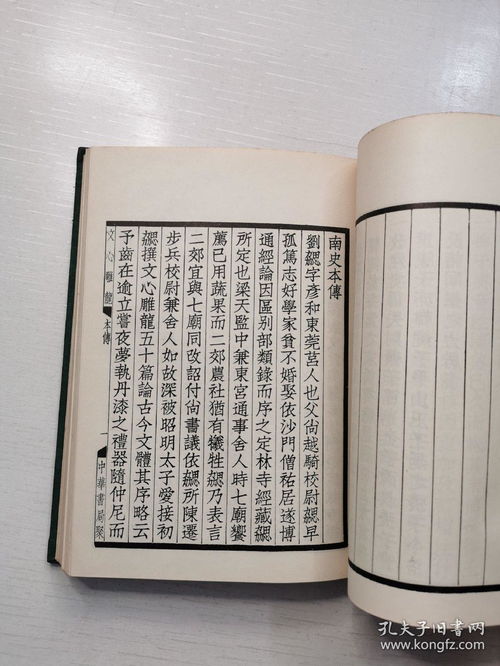 南史本傳
劉勰字彥和東莞莒人也父尚越騎校尉勰早
孤篤志好學家貧不婚娶依沙門僧祐居遂博
通經論因區別部類錄而序之定林寺經藏勰
所定也梁天監中兼東宮通事舍人時七廟饗
薦已用蔬果而二郊農社猶有犧牲勰乃表言
二郊宜與七廟同改詔付尚書議依勰所陳遷
步兵校尉兼舍人如故深被昭明太子愛接初
勰撰文心雕龍五十篇論古今文體其序略云
予齒在逾立嘗夜夢執丹漆之禮器隨仲尼而
文心雕龍 本傳 一 中華書局聚
孔夫子旧书网
www.kongfz.com